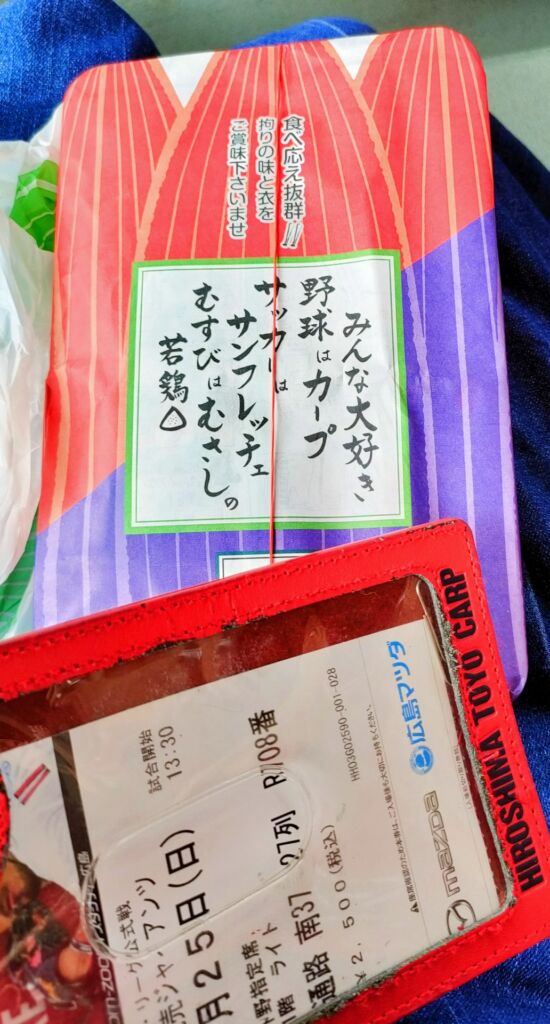 食べ応え抜群!!
拘りの味と衣を
ご賞味下さいませ
みんな大好き
野球はカープ
サッカーは
サンフレッチェ
むすびはむさしの
若鶏
HIROSHIMA TOYO CARP
広島マツダ
mazda
HH03G02590-001-028
試合開始
13:30
リーグ公式戦
売ジャイアンツ
月25日(日)
野指定席
階 ライト
通路 南37
27列
08番
2,500(税込)